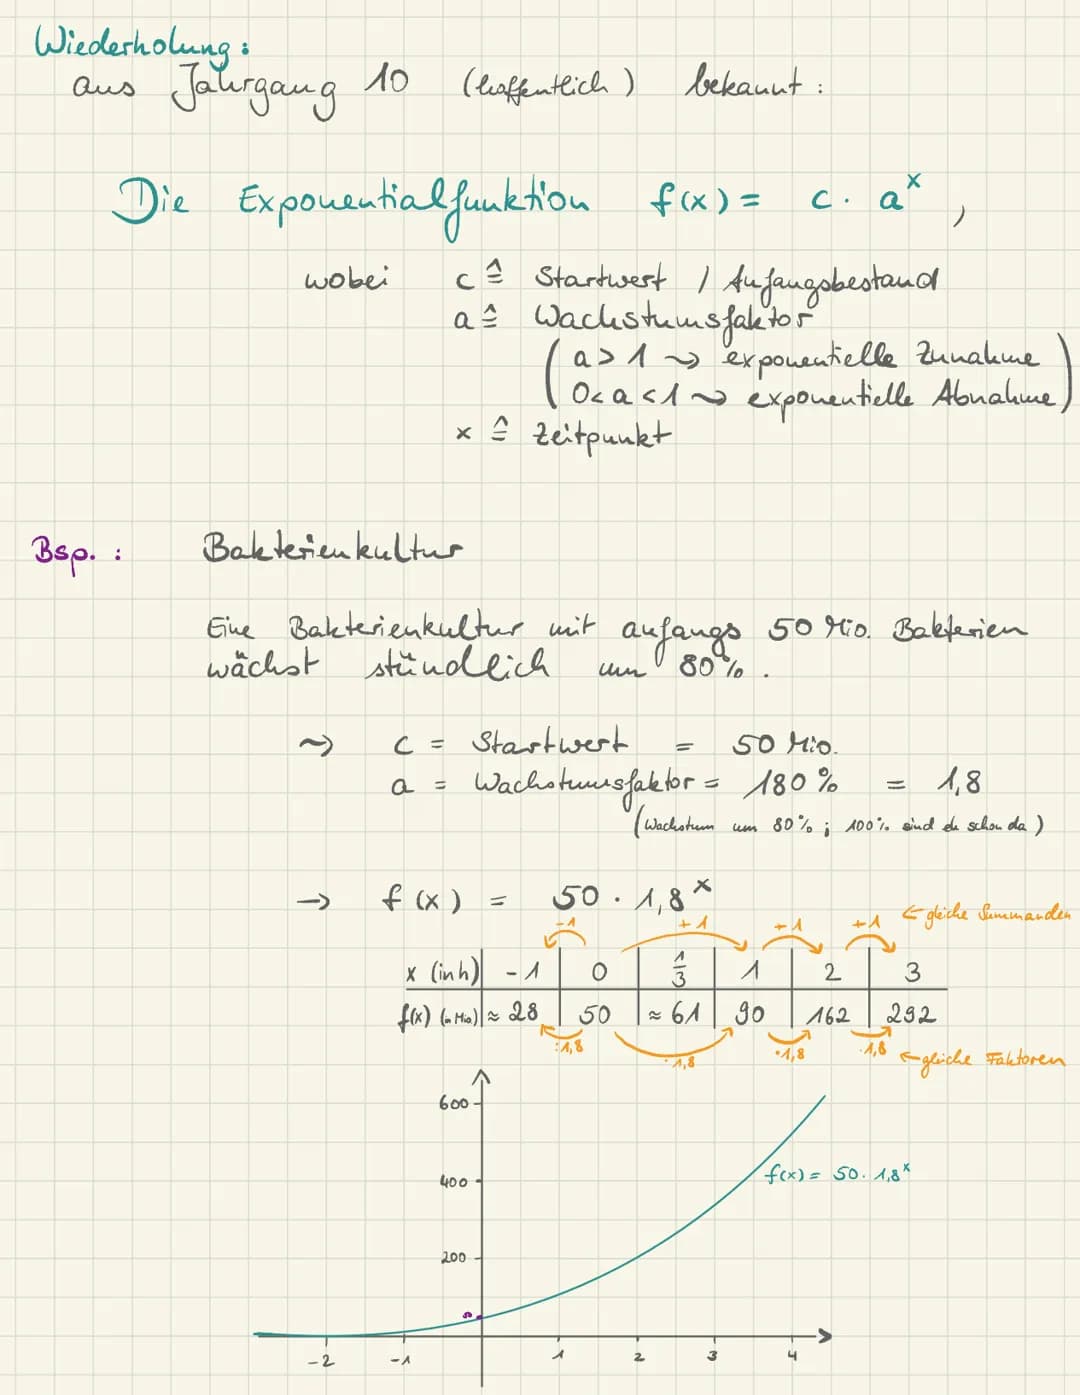 Wiederholung:
aus Jahrgang 10 (hoffentlich) bekannt:
Die Exponentialfunktion f(x) = c · aˣ,
wobei c ≙ Startwert / Anfangsbestand
a ≙ Wachstumsfaktor
(a > 1 ⤳ exponentielle Zunahme
0 < a < 1 ⤳ exponentielle Abnahme)
x ≙ Zeitpunkt
Bsp.: Bakterienkultur
Eine Bakterienkultur mit anfangs 50 Mio. Bakterien
wächst stündlich um 80%.
⤳ c = Startwert = 50 Mio.
a = Wachstumsfaktor = 180% = 1,8
(Wachstum um 80%; 100% sind eh schon da)
→ f(x) = 50 · 1,8ˣ
-1 +1 +1 +1 ← gleiche Summanden
x (in h) -1 0 1/3 1 2 3
f(x) (in Mio) ≈ 28 50 ≈ 61 90 162 292
:1,8 ·1,8 ·1,8 ·1,8 ← gleiche Faktoren
600
f(x) = 50 · 1,8ˣ
400
200
-2 -1 1 2 3 4